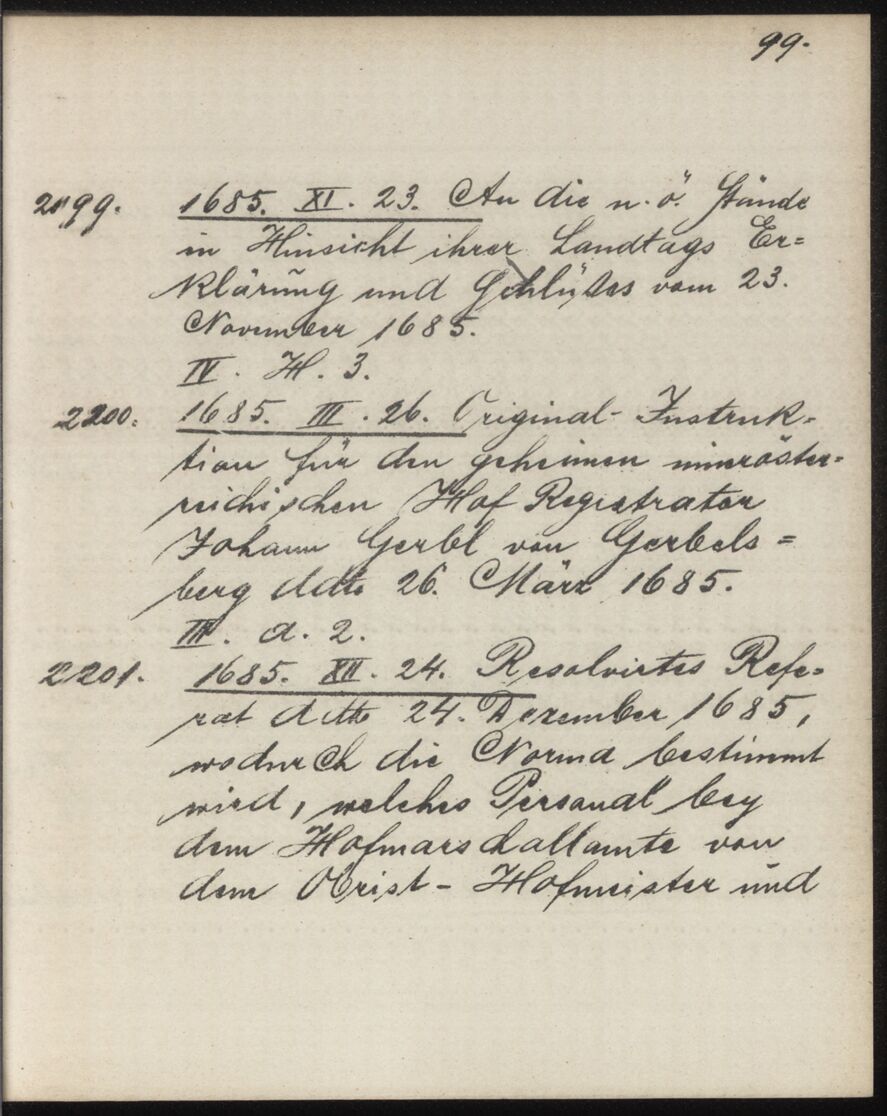 99.
2199. 1685. XI. 23. An die n. ö. Stände
in Hinsicht ihrer Landtags Er=
klärung und Schlußes vom 23.
November 1685.
IV. H. 3.
2200. 1685. III. 26. Original-Instruk=
tion für den geheimen inneröster=
reichischen Hof Registrator
Johann Gerbl von Gerbels=
berg ddto 26. März 1685.
III. d. 2.
2201. 1685. XII. 24. Resolvirtes Refe=
rat ddtto 24. Dezember 1685,
wodurch die Norma bestimmt
wird, welches Personal bey
dem Hofmarschallamte von
dem Obrist-Hofmeister und